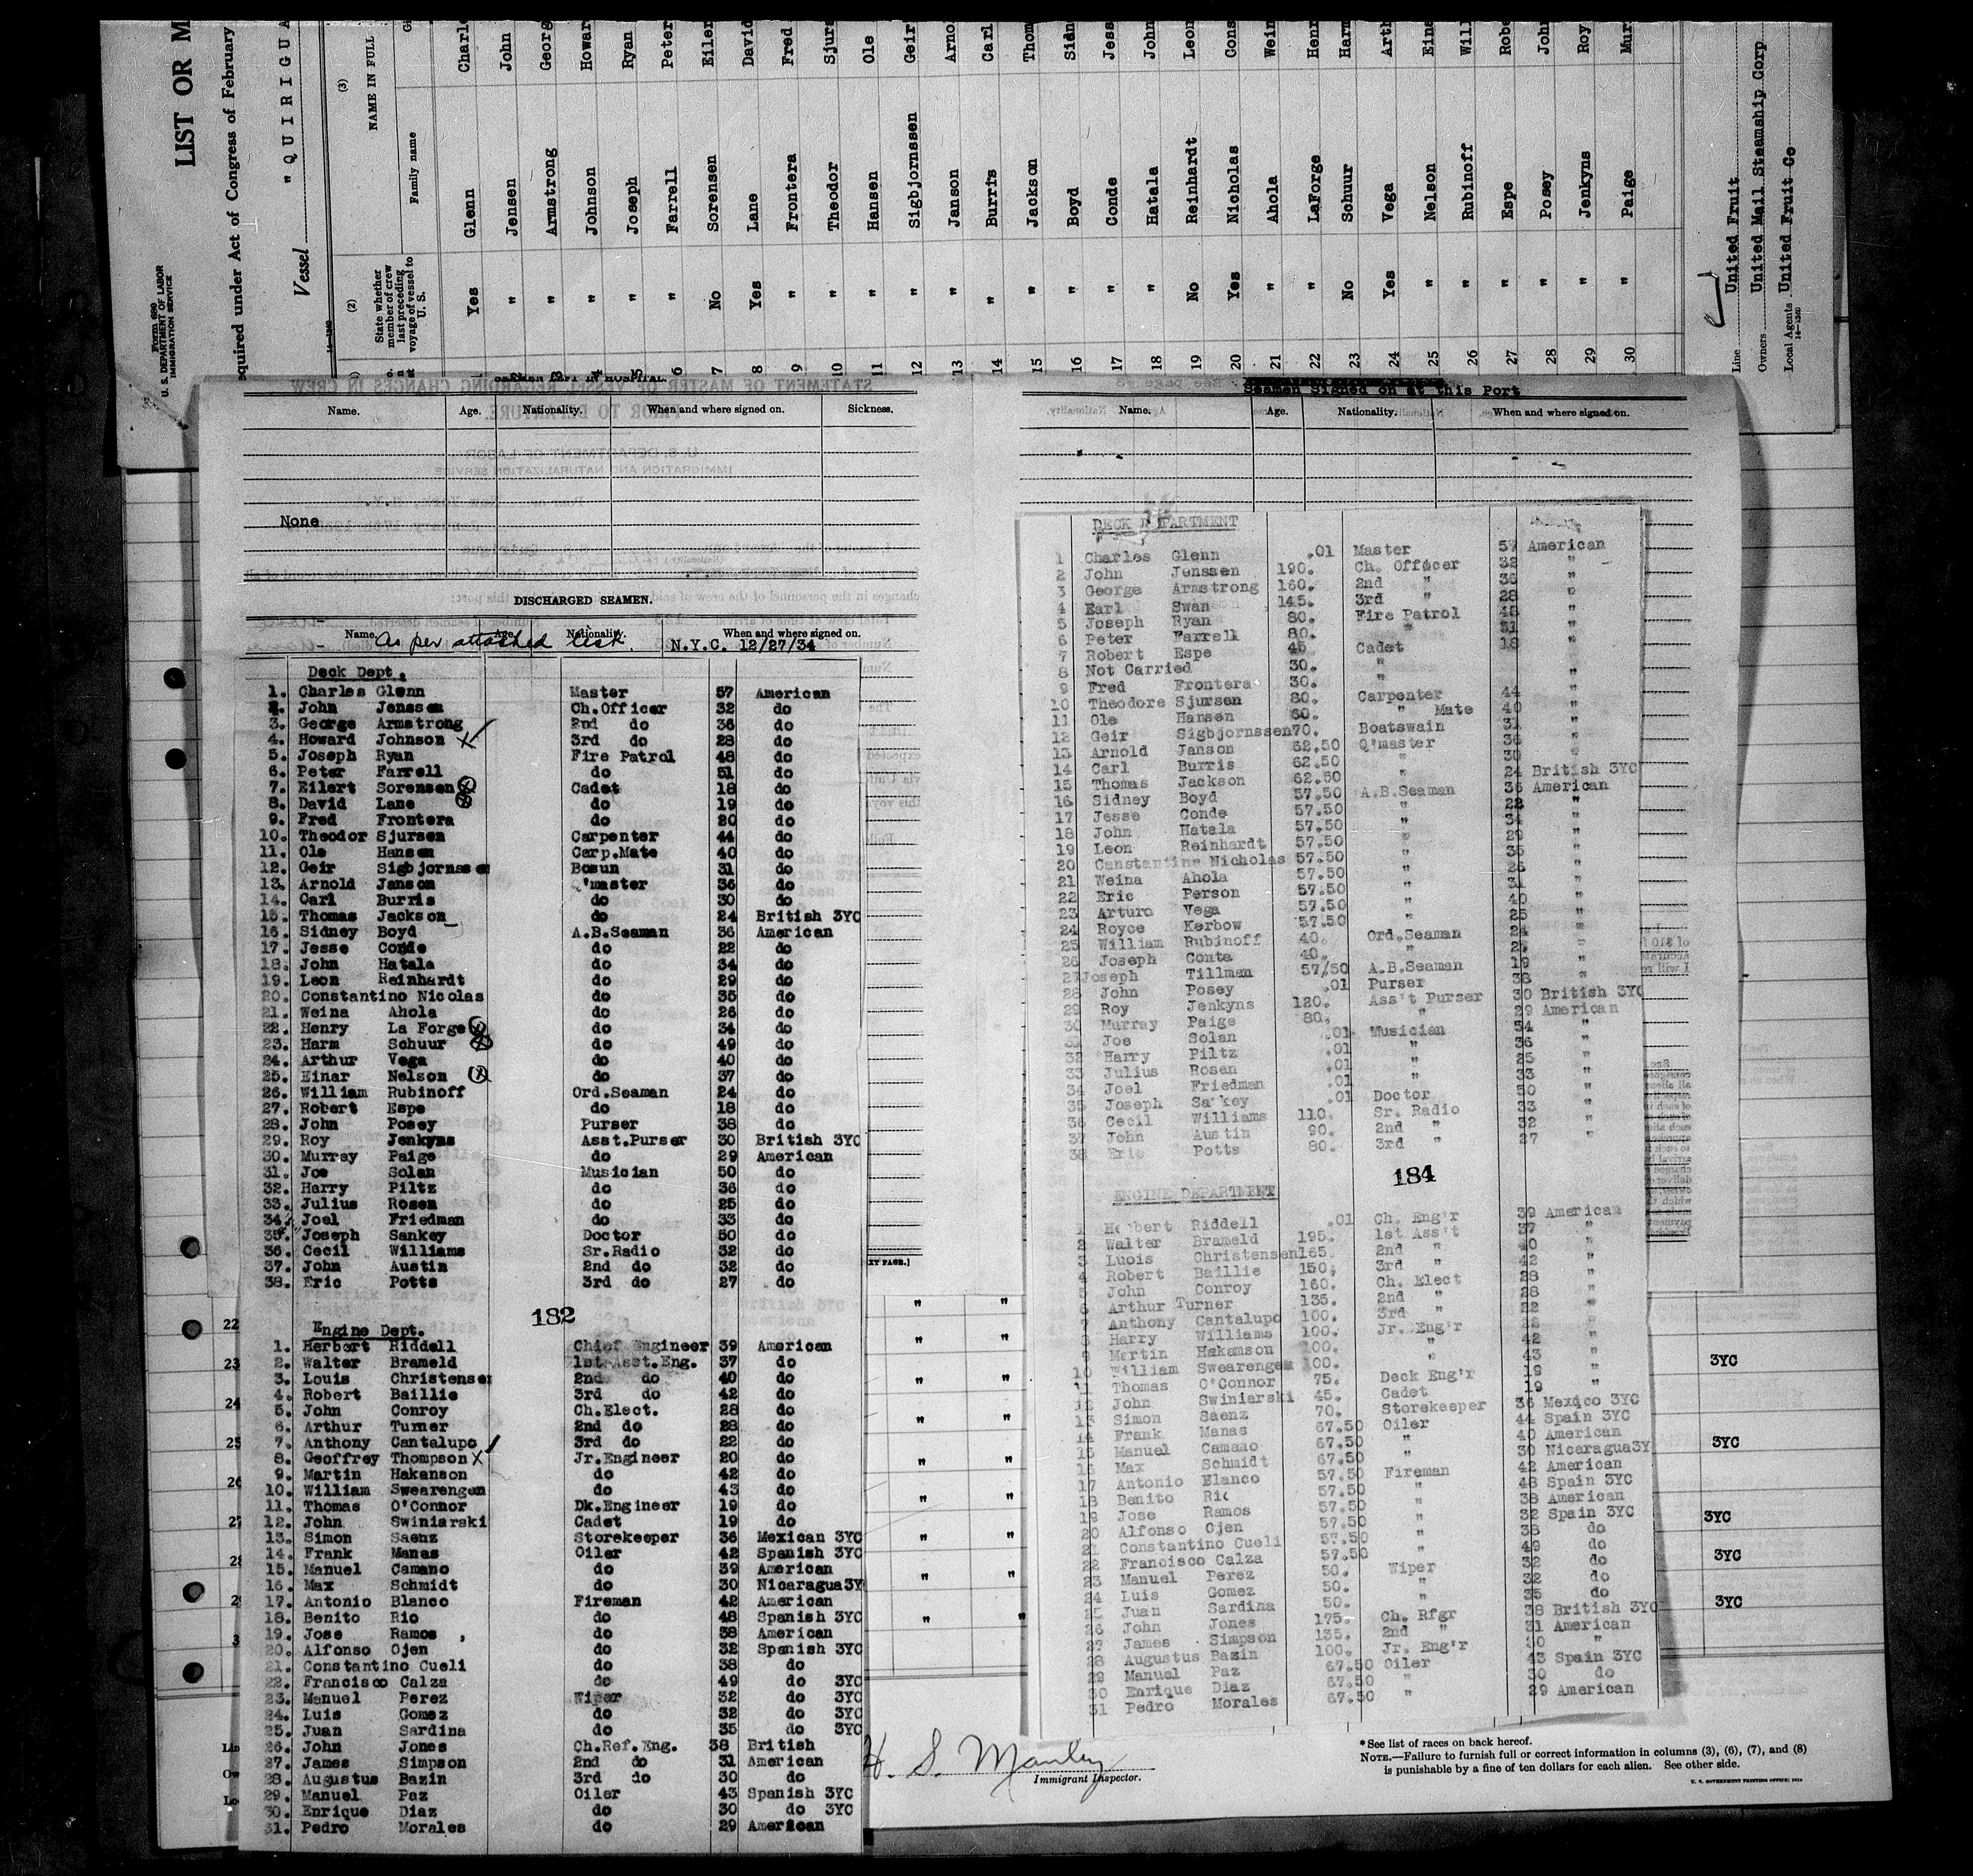 LIST OR M
equired under Act of Congress of February
Vessel "QUIRIGUA
Form 689
U. S. DEPARTMENT OF LABOR
IMMIGRATION SERVICE
(2)
(3)
State whether member of crew last preceding voyage of vessel to U. S.
NAME IN FULL
Family name
Yes Glenn Charl
" Jensen John
3 " Armstrong Georg
4 " Johnson Howar
5 " Joseph Ryan
6 " Farrell Peter
7 No Sorensen Eiler
8 Yes Lane David
9 " Frontera Fred
10 " Theodor Sjurs
11 " Hansen Ole
12 " Sigbjornssen Geir
13 " Janson Arno
14 " Burris Carl
15 " Jackson Thom
16 " Boyd Sidn
17 " Conde Jess
18 " Hatala John
19 No Reinhardt Leon
20 Yes Nicholas Cons
21 " Ahola Wein
22 " LaForge Henr
23 No Schuur Harm
24 Yes Vega Arth
25 " Nelson Eina
26 " Rubinoff Will
27 " Espe Robe
28 " Posey John
29 " Jenkyns Roy
30 " Paige Mur
Line United Fruit
Owners United Mail Steamship Corp
Local Agents United Fruit Co
Name. Age. Nationality. When and where signed on. Sickness.
None
DISCHARGED SEAMEN.
Name. Age. Nationality. When and where signed on.
As per attached list. N.Y.C. 12/27/34
Deck Dept.
1. Charles Glenn Master 57 American
2. John Jenssen Ch.Officer 32 do
3. George Armstrong 2nd do 36 do
4. Howard Johnson 3rd do 28 do
5. Joseph Ryan Fire Patrol 48 do
6. Peter Farrell do 51 do
7. Eilert Sorensen Cadet 18 do
8. David Lane do 19 do
9. Fred Frontera do 20 do
10. Theodor Sjursen Carpenter 44 do
11. Ole Hansen Carp.Mate 40 do
12. Geir Sigbjornssen Bosun 31 do
13. Arnold Janson Q'master 36 do
14. Carl Burris do 30 do
15. Thomas Jackson do 24 British 3YC
16. Sidney Boyd A.B.Seaman 36 American
17. Jesse Conde do 22 do
18. John Hatala do 34 do
19. Leon Reinhardt do 29 do
20. Constantino Nicolas do 35 do
21. Weina Ahola do 26 do
22. Henry La Forge do 34 do
23. Harm Schuur do 49 do
24. Arthur Vega do 40 do
25. Einar Nelson do 37 do
26. William Rubinoff Ord.Seaman 24 do
27. Robert Espe do 18 do
28. John Posey Purser 38 do
29. Roy Jenkyns Asst.Purser 30 British 3YC
30. Murray Paige do 29 American
31. Joe Solan Musician 50 do
32. Harry Piltz do 36 do
33. Julius Rosen do 25 do
34. Joel Friedman do 33 do
35. Joseph Sankey Doctor 50 do
36. Cecil Williams Sr.Radio 32 do
37. John Austin 2nd do 32 do
38. Eric Potts 3rd do 27 do
182
Engine Dept.
1. Herbert Riddell Chief Engineer 39 American
2. Walter Brameld 1st Asst.Eng. 37 do
3. Louis Christensen 2nd do 40 do
4. Robert Baillie 3rd do 42 do
5. John Conroy Ch.Elect. 28 do
6. Arthur Turner 2nd do 28 do
7. Anthony Cantalupo 3rd do 22 do
8. Geoffrey Thompson Jr.Engineer 20 do
9. Martin Hakanson do 42 do
10. William Swearengen do 43 do
11. Thomas O'Connor Dk.Engineer 19 do
12. John Swiniarski Cadet 19 do
13. Simon Saenz Storekeeper 36 Mexican 3YC
14. Frank Manas Oiler 42 Spanish 3YC
15. Manuel Camano do 39 American
16. Max Schmidt do 30 Nicaragua3Y
17. Antonio Blanco Fireman 42 American
18. Benito Rio do 48 Spanish 3YC
19. Jose Ramos do 38 American
20. Alfonso Ojen do 32 Spanish 3YC
21. Constantino Cueli do 38 do
22. Francisco Calza do 49 do 3YC
23. Manuel Perez Wiper 32 do 3YC
24. Luis Gomez do 32 do 3YC
25. Juan Sardina do 35 do 3YC
26. John Jones Ch.Ref.Eng. 38 British
27. James Simpson 2nd do 31 American
28. Augustus Bazin 3rd do 30 do
29. Manuel Paz Oiler 43 Spanish 3YC
30. Enrique Diaz do 30 do 3YC
31. Pedro Morales do 29 American
Seamen Signed on at this Port
Name. Age. Nationality. When and where signed on.
DECK DEPARTMENT
1 Charles Glenn .01 Master 57 American
2 John Jenssen 190. Ch. Officer 32 "
3 George Armstrong 160. 2nd " 36 "
4 Earl Swan 145. 3rd " 28 "
5 Joseph Ryan 80. Fire Patrol 48
6 Peter Farrell 80. " 51
7 Robert Espe 45 Cadet 18
8 Not Carried 30. "
9 Fred Frontera 30. "
10 Theodore Sjursen 80. Carpenter 44 "
11 Ole Hansen 60. " Mate 40 "
12 Geir Sigbjornssen 70. Boatswain 31 "
13 Arnold Janson 62.50 Q'master 36 "
14 Carl Burris 62.50 " 30 "
15 Thomas Jackson 62.50 " 24 British 3YC
16 Sidney Boyd 57.50 A.B.Seaman 36 American
17 Jesse Conde 57.50 " 22 "
18 John Hatala 57.50 " 34 "
19 Leon Reinhardt 57.50 " 29 "
20 Constantine Nicholas 57.50 " 35 "
21 Weina Ahola 57.50 " 26 "
22 Eric Person 57.50 " 31 "
23 Arturo Vega 57.50 " 40 "
24 Royce Kerbow 57.50 " 25 "
25 William Rubinoff 40. Ord.Seaman 24 "
26 Joseph Conta 40. "
27 Joseph Tillman 57/50 A.B.Seaman 19 "
28 John Posey .01 Purser 38 "
29 Roy Jenkyns 120. Ass't Purser 30 British 3YC
30 Murray Paige 80. " 29 American
31 Joe Solan .01 Musician 54 "
32 Harry Piltz .01 " 36 "
33 Julius Rosen .01 " 25 "
34 Joel Friedman .01 " 33 "
35 Joseph Sankey .01 Doctor 50 "
36 Cecil Williams 110. Sr. Radio 33 "
37 John Austin 90. 2nd " 32 "
38 Eric Potts 80. 3rd " 27 "
184
ENGINE DEPARTMENT
1 Herbert Riddell .01 Ch. Eng'r 39 American
2 Walter Brameld 195. 1st Ass't 37 "
3 Luois Christensen 165. 2nd " 40 "
4 Robert Baillie 150. 3rd " 42 "
5 John Conroy 160. Ch. Elect 28 "
6 Arthur Turner 135. 2nd " 28 "
7 Anthony Cantalupo 100. 3rd " 22 "
8 Harry Williams 100. Jr. Eng'r 22 "
9 Martin Hakamson 100. " 42 "
10 William Swearengem 100. " 43 "
11 Thomas O'Connor 75. Deck Eng'r 19 "
12 John Swiniarski 45. Cadet 19 "
13 Simon Saenz 70. Storekeeper 36 Mexico 3YC
14 Frank Manas 67.50 Oiler 44 Spain 3YC
15 Manuel Camano 67.50 " 40 American
16 Max Schmidt 67.50 " 30 Nicaragua3Y
17 Antonio Blanco 57.50 Fireman 42 American
18 Benito Rio 57.50 " 48 Spain 3YC
19 Jose Ramos 57.50 " 38 American
20 Alfonso Ojen 57.50 " 32 Spain 3YC
21 Constantino Cueli 57.50 " 38 do
22 Francisco Calza 57.50 " 49 do
23 Manuel Perez 50. Wiper 32 do
24 Luis Gomez 50. " 32 do
25 Juan Sardina 50. " 35 do
26 John Jones 175. Ch. Rfgr 38 British 3YC
27 James Simpson 135. 2nd " 31 American
28 Augustus Bazin 100. Jr. Eng'r 30 "
29 Manuel Paz 67.50 Oiler 43 Spain 3YC
30 Enrique Diaz 67.50 " 30 do
31 Pedro Morales 67.50 " 29 American
XT PAGE.]
22 " "
23 " " 3YC
24 " "
25 " " 3YC
26 " "
27 " " 3YC
28 " " 3YC
" " 3YC
H. S. Manley
Immigrant Inspector.
*See list of races on back hereof.
NOTE.—Failure to furnish full or correct information in columns (3), (6), (7), and (8)
is punishable by a fine of ten dollars for each alien. See other side.
U. S. GOVERNMENT PRINTING OFFICE: